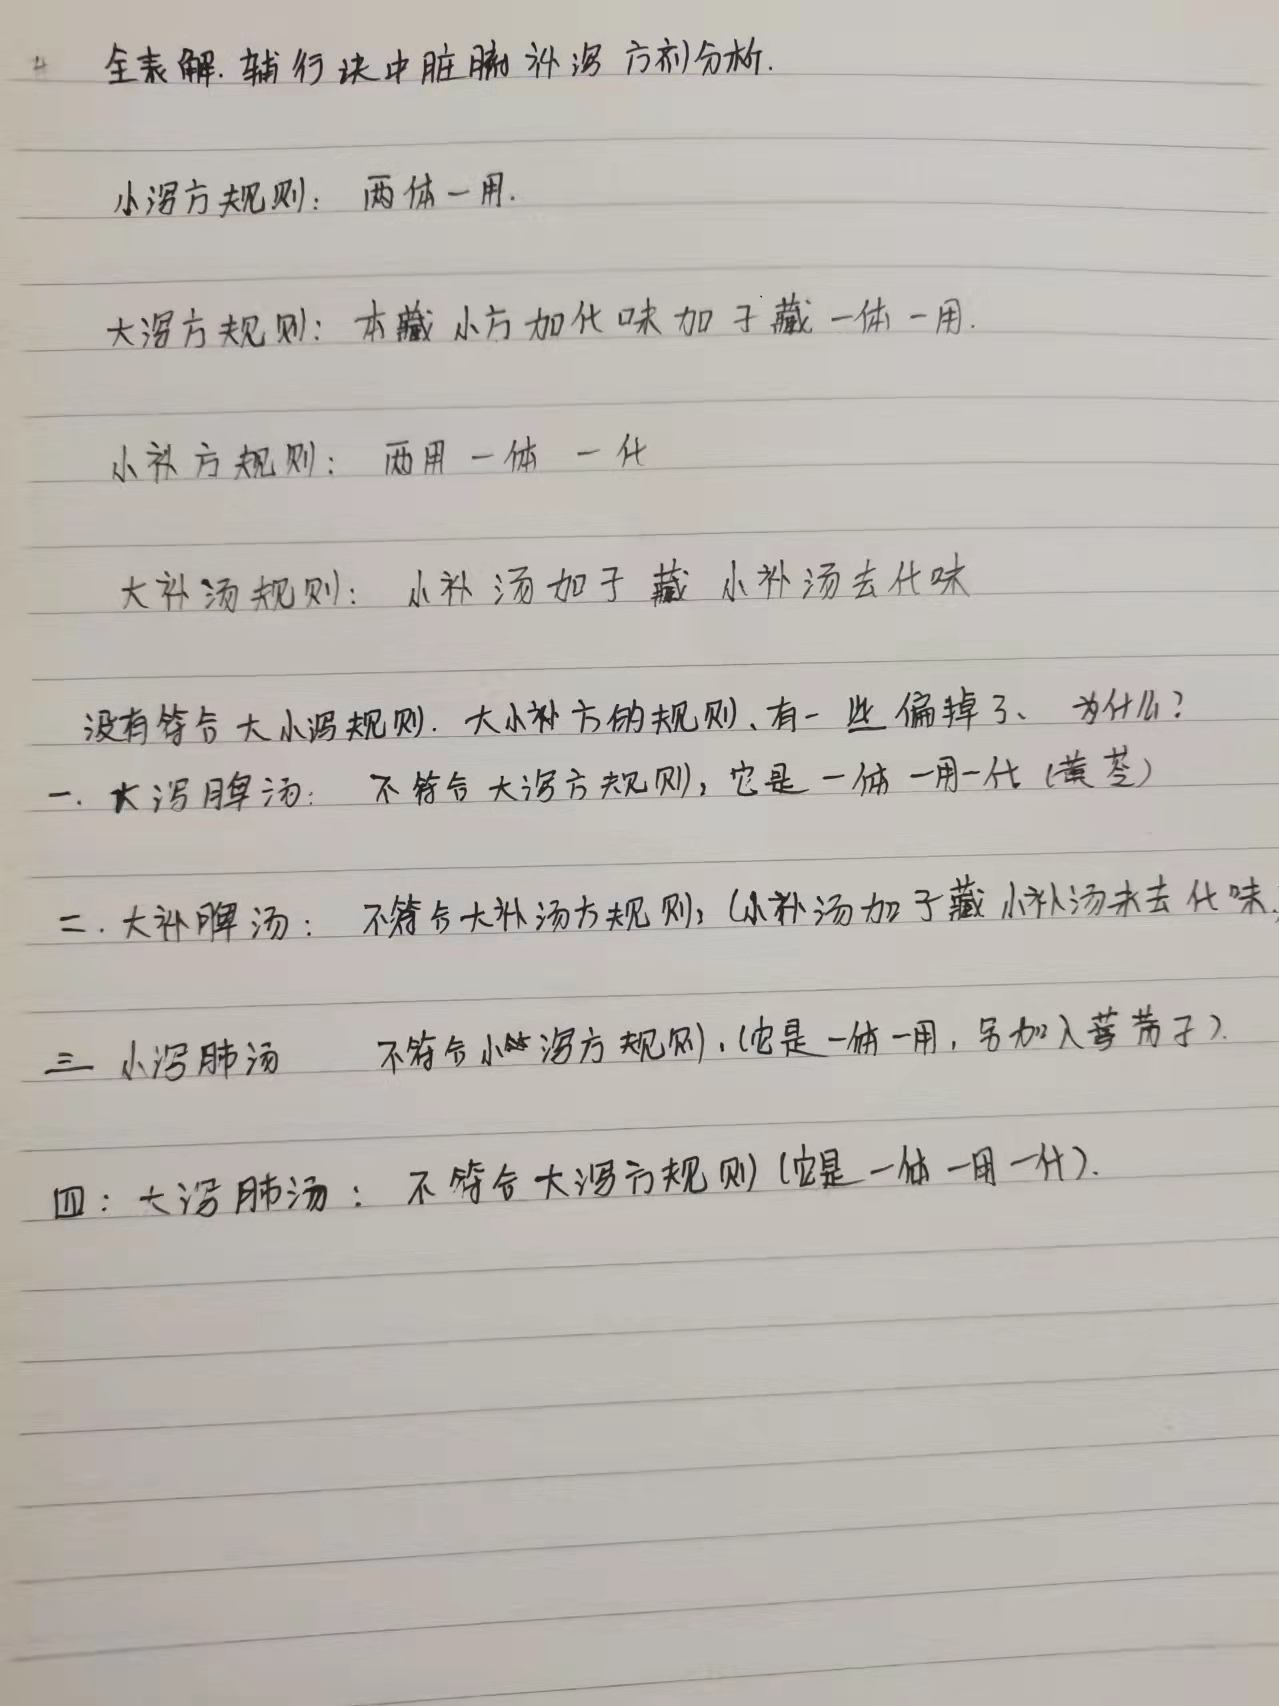 全表解.辅行诀中脏腑补泻方剂分析.
小泻方规则: 两体一用.
大泻方规则: 本藏小方加化味加子藏一体一用.
小补方规则: 两用一体 一化
大补汤规则: 小补汤加子藏 小补汤去化味
没有符合大小泻规则.大小补方的规则、有一些偏掉了、为什么?
一.大泻脾汤: 不符合大泻方规则,它是一体一用一化(黄芩)
二.大补脾汤: 不符合大补汤方规则,(小补汤加子藏小补汤未去化味.
三 小泻肺汤 不符合小泻方规则,(它是一体一用,另加入葶苈子).
四:大泻肺汤: 不符合大泻方规则(它是一体一用一化).